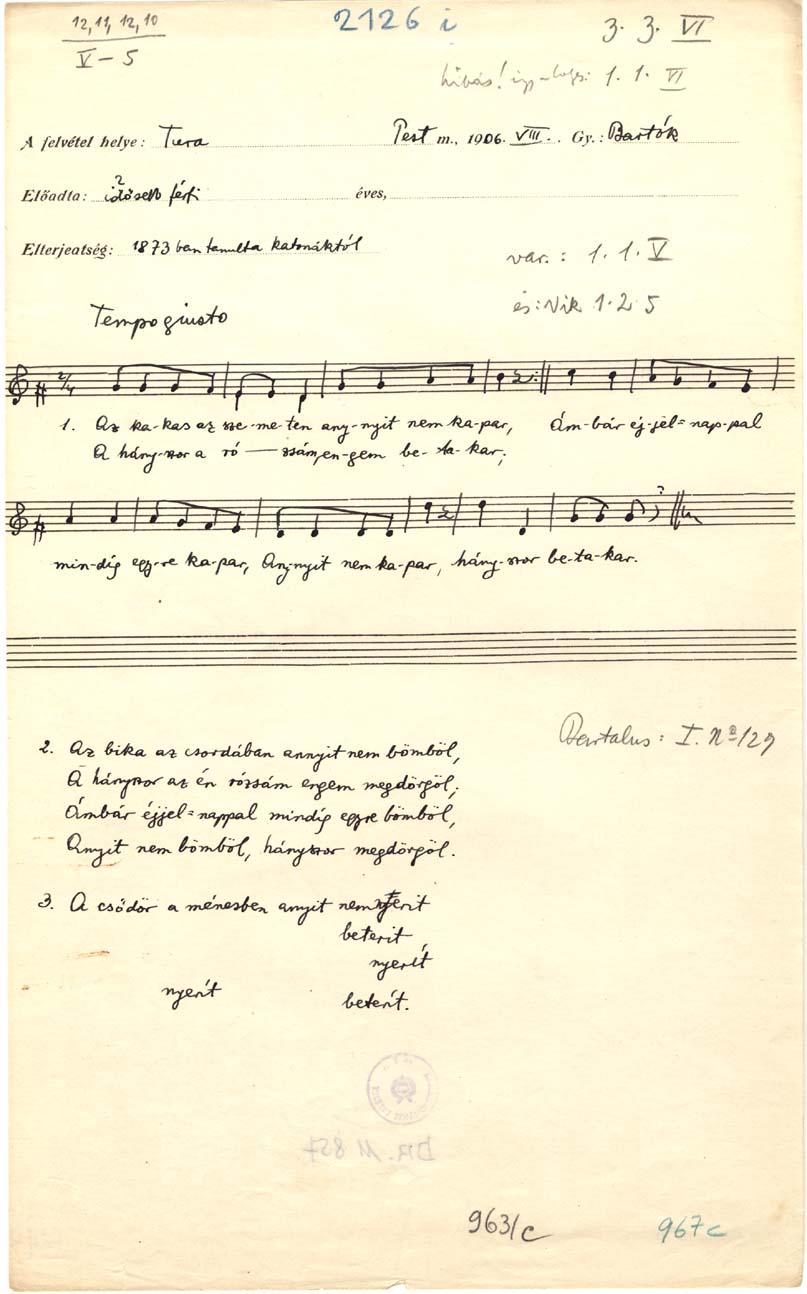 12, 11, 12, 10
V – 5
2126 i
3. 3. VI
hibás! 1. 1. VI
A felvétel helye: Tura Pest m., 1906. VIII. Gy.: Bartók
Előadta: idősebb férfi éves,
Elterjeatség: 1873 ban tanulta katonáktól
var.: 1. 1. V
és: Vik 1. 2 5
Tempo giusto
2/4
1. Az ka-kas az sze-me-ten any-nyit nem ka-par, Ám-bár éj-jel=nap-pal
A hány-szor a ró — zsám, en-gem be-ta-kar;
min-dig egy-re ka-par, Any-nyit nem ka-par, hány-szor be-ta-kar.
Bartalus: I. No 129
2. Az bika az csordában annyit nem bömböl,
A hányszor az én rózsám engem megdörgöl;
Ámbár éjjel=nappal mindig egyre bömböl,
Anyit nem bömböl, hányszor megdörgöl.
3. A csődör a ménesben anyit nem nyerit
beterit
nyerít
nyerít beterít.
DR. M 857
963/c
967c